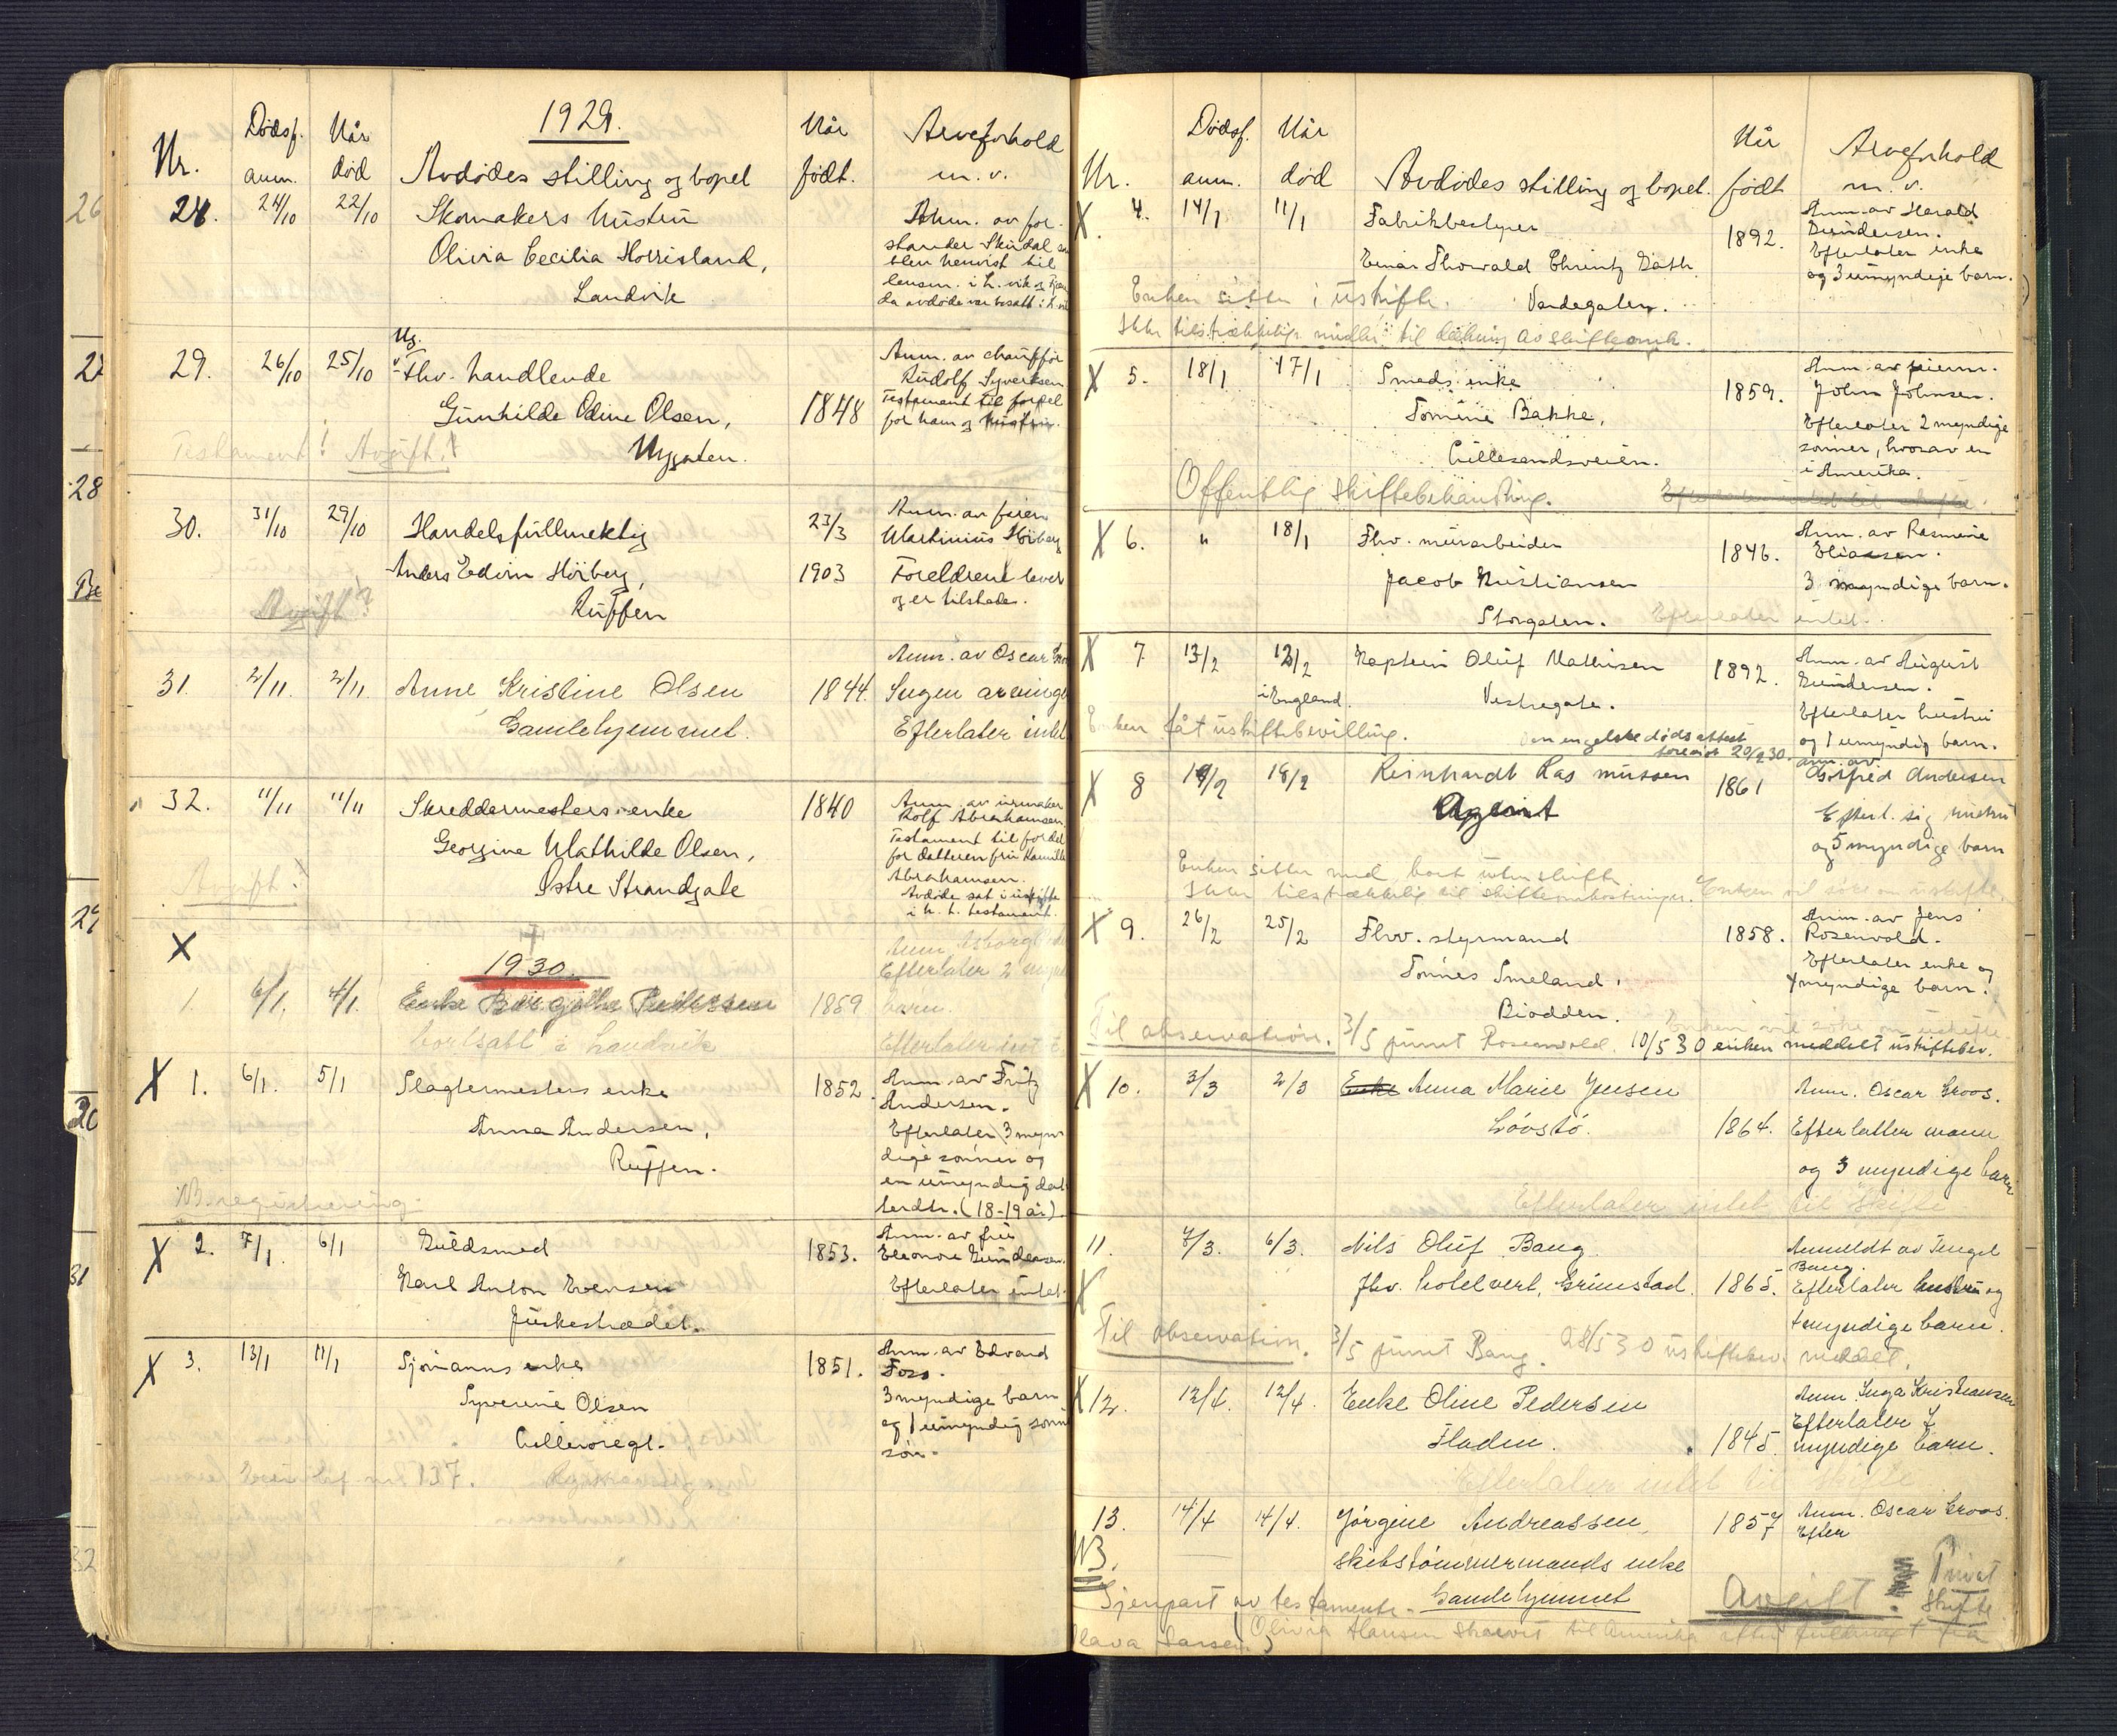 1929.
Nr.
Dødsf. anm.
Når død
Avdødes stilling og bopel
Når født.
Arveforhold m. v.
28. 24/10 22/10 Skomakers hustru
Olivia Cecilia Horrisland,
Landvik
Anm. av for-
stander Skindal
blev henvist til
lensm. i L.vik og
da avdøde var bosatt i
29. 26/10 25/10 Fhv. handlende
Gunhilde Odine Olsen,
Nygaten.
1848
Anm. av chauffør
Rudolf Syvertsen
Testament til fordel
for ham og hustru.
Testament! Avgift!
30. 31/10 29/10 Handelsfullmektig
Anders Edvin Hörberg,
Ruffen
23/3
1903
Anm. av feier
Martinius Hörberg
Foreldrene lever
og er tilstede.
Avgift?
31. 2/11 2/11. Anne Kristine Olsen
Gamlehjemmet.
1844.
Anm. av Oscar
Ingen arvinger
Efterlater intet
32. 11/11 11/11 Skreddermesters enke
Georgine Mathilde Olsen,
Østre Strandgate
1840
Anm. av urmaker
Rolf Abrahamsen.
Testament til fordel
for datteren fru
Abrahamsen.
Avdøde sat i uskifte
i h. t. testament.
Avgift!
X
1930.
1. 6/1. 4/1. Enke Pedersen
bortsatt i Landvik
1859
Anm.
Efterlater 2
barn.
Efterlater intet
X 1. 6/1. 5/1 Slagtermesters enke
Anna Andersen,
Ruffen.
1852.
Anm. av Fritz
Andersen.
Efterlater 3 myn-
dige sønner og
en umyndig dat-
terdtr. (18-19 år)
Registrering.
X 2. 7/1. 6/1 Guldsmed
Karl Anton Evensen
Juskestrædet.
1853.
Anm. av fru
Eleonore Gundersen.
Efterlater intet.
X 3. 13/1 11/1 Sjømanns enke
Syverine Olsen
Lillevoregt.
1851.
Anm. av Edvard
Foss.
3 myndige barn
og 1 umyndig sønne-
søn.
137.
Nr.
Dødsf. anm.
Når død
Avdødes stilling og bopel.
Når født
Arveforhold m. v.
X 4. 14/1 11/1 Fabrikbestyrer
Einar Thorvald Chrintz Gath.
Vardegaten.
1892.
Anm. av Harald
Gundersen.
Efterlater enke
og 3 umyndige barn.
Enken sitter i uskifte.
Ikke tilstrækkelige midler til dækning av skifteomk.
X 5. 18/1 17/1 Smeds enke
Tomine Bakke,
Lillesandsveien.
1859.
Anm. av feierm.
John Johnsen.
Efterlater 2 myndige
sønner, hvorav en
i Amerika.
Offentlig skiftebehandling.
X 6. " 18/1 Fhv. murarbeider
Jacob Kristiansen
Storgaten.
1846.
Anm. av Rasmine
Eliassen.
3 myndige barn.
Efterlater intet.
X 7 13/2 12/2 Kaptein Oluf Mathisen
i England.
Vestregate.
1892.
Anm. av August
Gundersen.
Efterlater hustru
og 1 umyndig barn.
Enken fåt uskiftebevilling.
Den engelske dødsattest
forevist 20/2 30.
X 8 19/2 18/2 Reinhardt Rasmussen
Agent
1861
anm. av
Gotfred Andersen
Efterl. sig hustru
og 5 myndige barn
Enken sitter med bort uten skifte
Ikke tilstrækkelig til skifteomkostninger. Enken vil søke om uskifte.
X 9. 26/2 25/2 Fhv. styrmand
Tønnes Smeland,
Biodden.
1858.
Anm. av Jens
Rosenvold.
Efterlater enke og
4 myndige barn.
Enken vil søke om uskifte
Til observation. 3/5 purret Rosenvold. 10/5 30 enken meddelt uskiftebev.
X 10. 3/3 2/3 Enke Anna Marie Jensen
Løvstø.
1864.
Anm. Oscar Groos.
Efterlatter mann
og 3 myndige barn
Efterlater intet til skifte
11. 7/3. 6/3. Nils Oluf Bang.
X fhv. hotelvert, Grimstad.
1865.
Anmeldt av Tengel
Bang.
Efterlater hustru og
4 myndige barn.
Til observation. 3/5 purret Bang. 28/5 30 uskiftebev. meddelt.
X 12. 12/4. 12/4 Enke Oline Pedersen
Fladen.
1845.
Anm. Inga Kristiansen
Efterlater 7
myndige barn.
Efterlater intet til skifte
13. 14/4 14/4. Jørgine Andreassen,
skibstømmermands enke
Gamlehjemmet
1857
Anm. Oscar Groos.
Efter
NB.
Gjenpart av testamente.
Avgift.
Privat
Skifte.
Olava Larsen, Olivia Hansen skrevet til Amerika efter fuldmagt fra